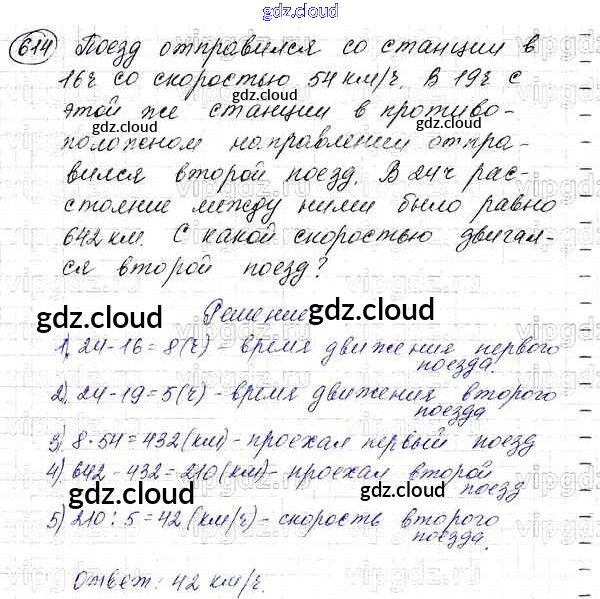 gdz.cloud
614 Поезд отправился со станции в
16ч со скоростью 54 км/ч. В 19ч с
gdz.cloud gdz.cloud
этой же станции в противо-
положеном направлении отпра-
gdz.cloud
вился второй поезд. В 24ч рас-
стояние между ними было равно
642 км. С какой скоростью двигал-
gdz.cloud
ся второй поезд?
Решение
gdz.cloud gdz.cloud
1) 24-16=8(ч) - время движения первого
поезда.
2) 24-19=5(ч) - время движения второго
поезда
gdz.cloud
3) 8·54=432(км) - проехал первый поезд
4) 642-432=210(км) - проехал второй
поезд
gdz.cloud gdz.cloud
5) 210:5=42(км/ч) - скорость второго
поезда.
gdz.cloud
Ответ: 42 км/ч.